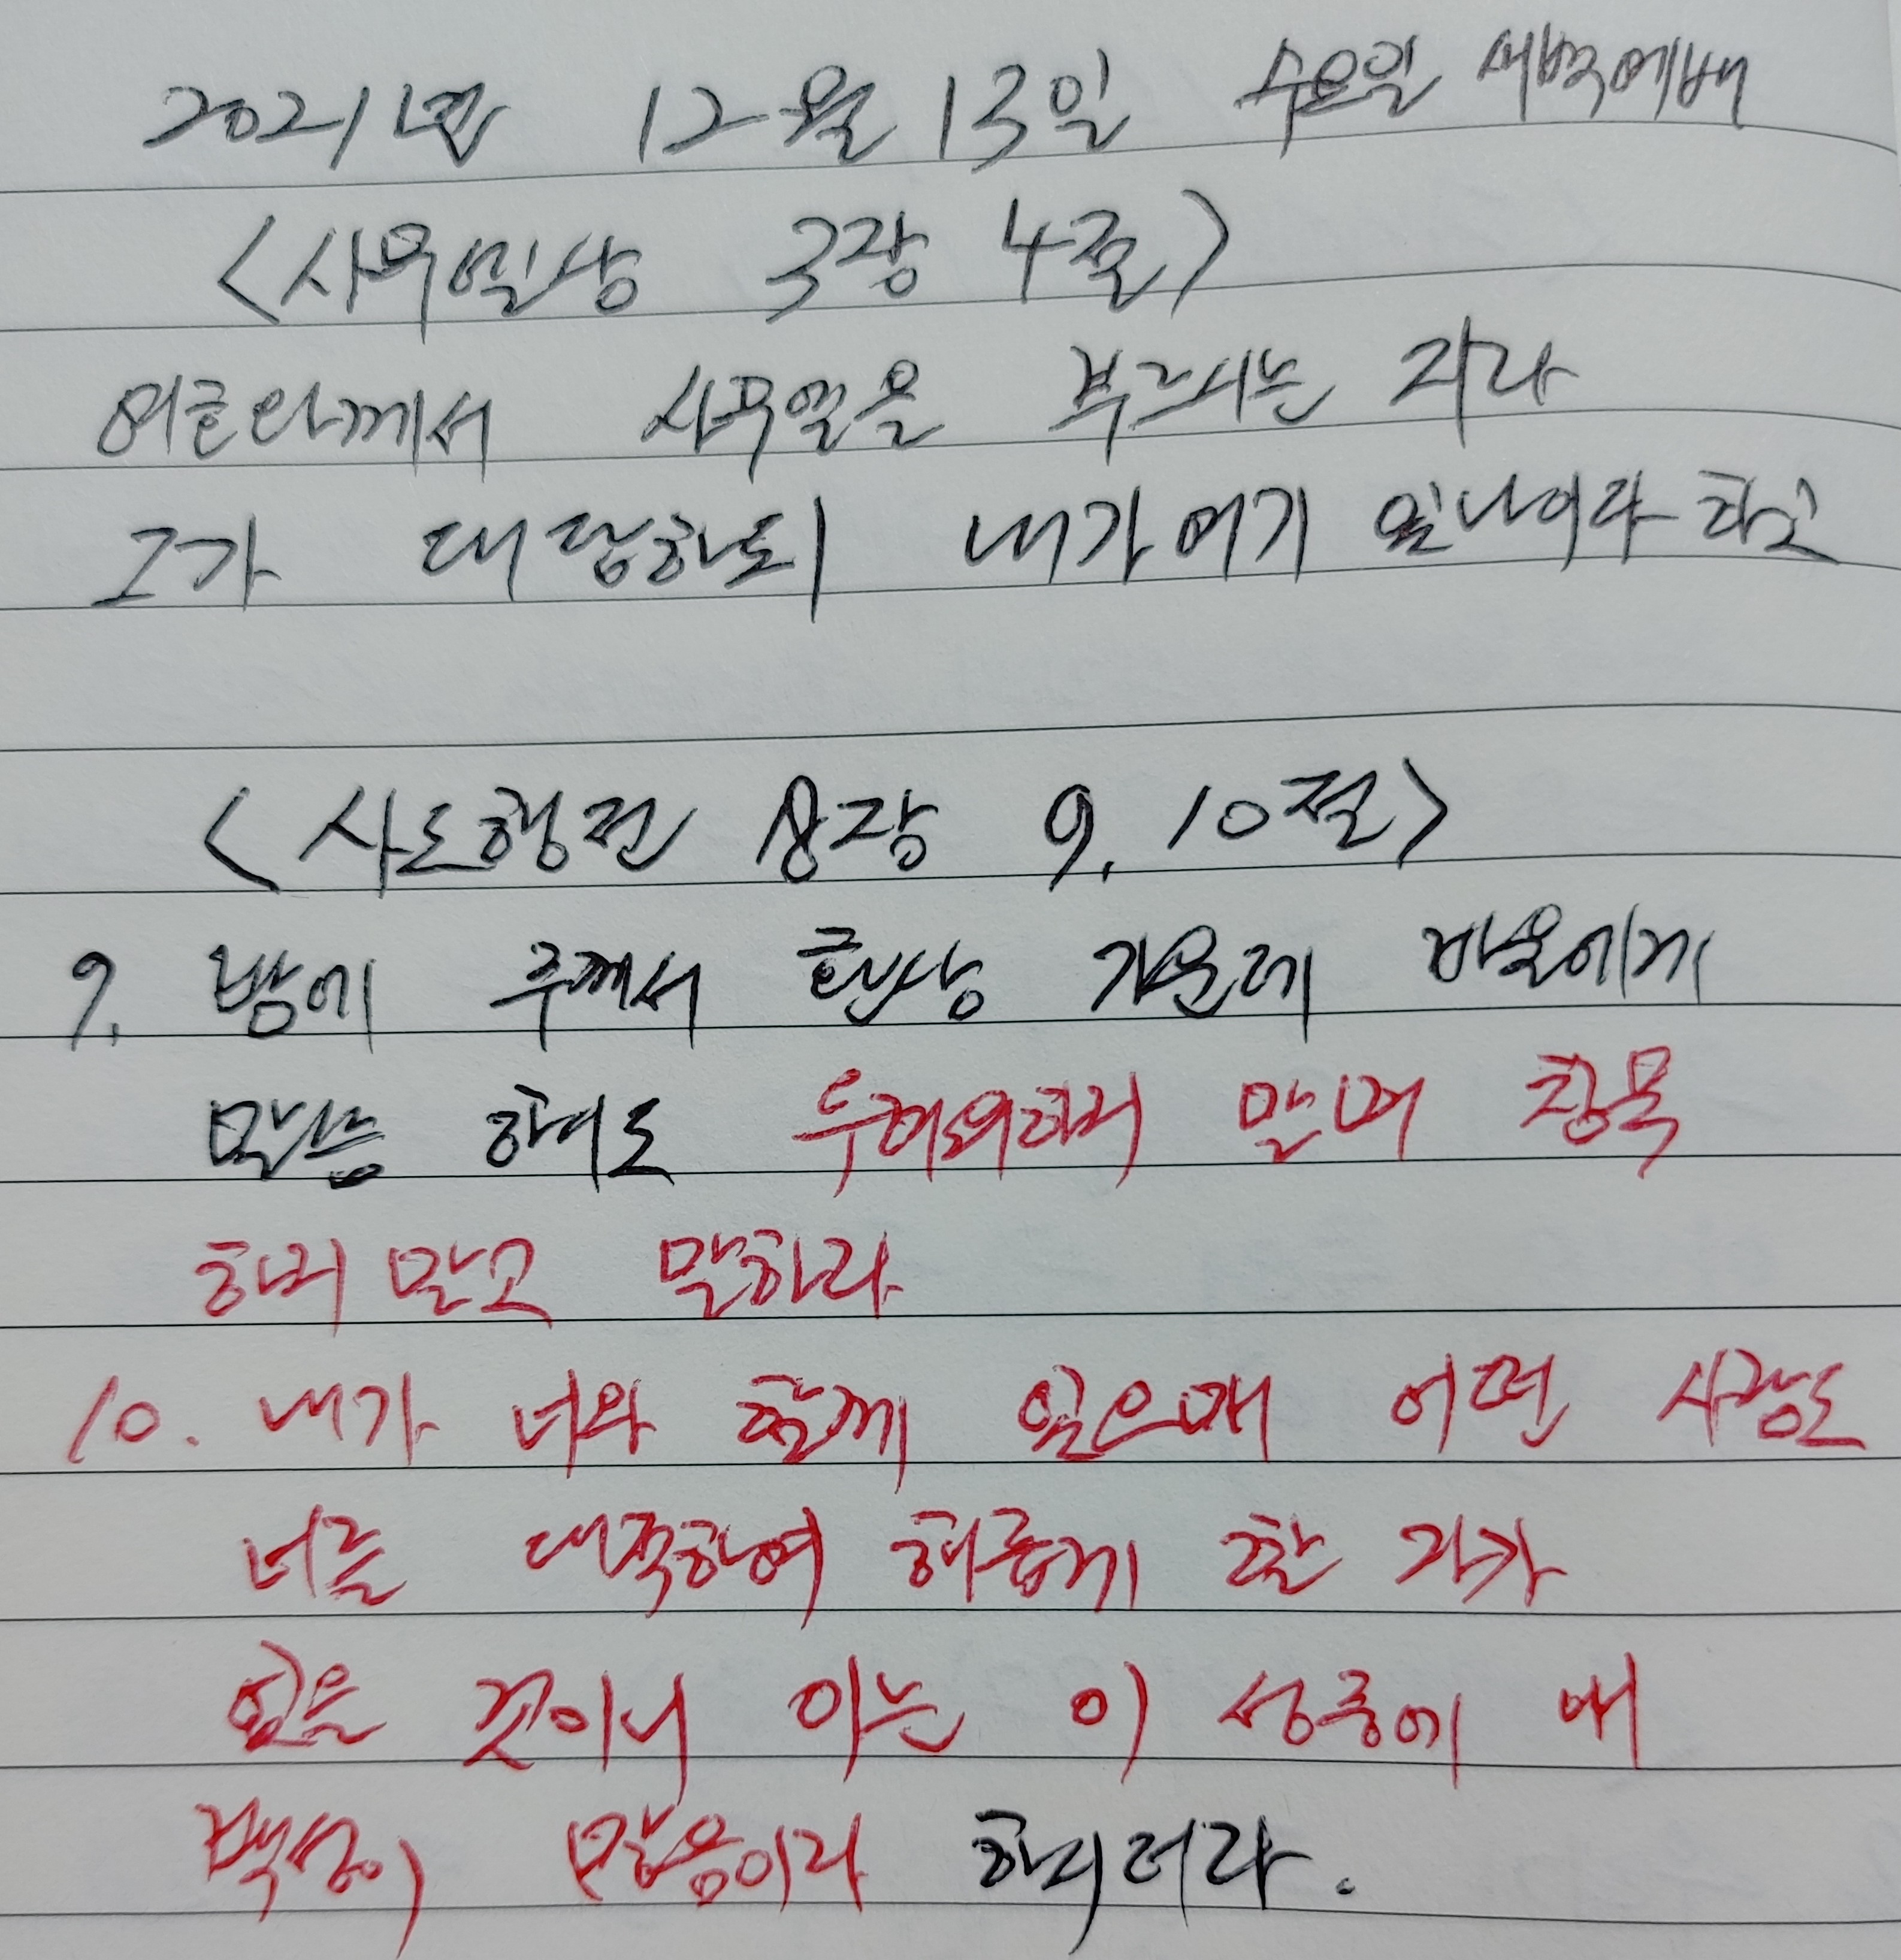 2021년 12월 13일 수요일 새벽예배
<사무엘상 3장 4절>
여호와께서 사무엘을 부르시는 지라
그가 대답하되 내가 여기 있나이다 하고
<사도행전 8장 9, 10절>
9. 밤에 주께서 환상 가운데 바울에게
말씀 하여도 두려워하지 말며 침묵
하지 말고 말하라
10. 내가 너와 함께 있으매 어떤 사람도
너를 대적하여 해롭게 할 자가
없을 것이니 이는 이 성중에 내
백성이 많음이라 하시더라.